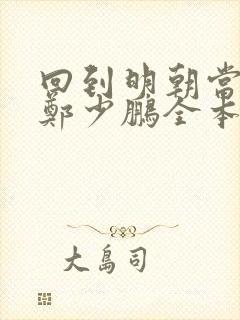 回到明朝当
鄭少鵬全本
大島司